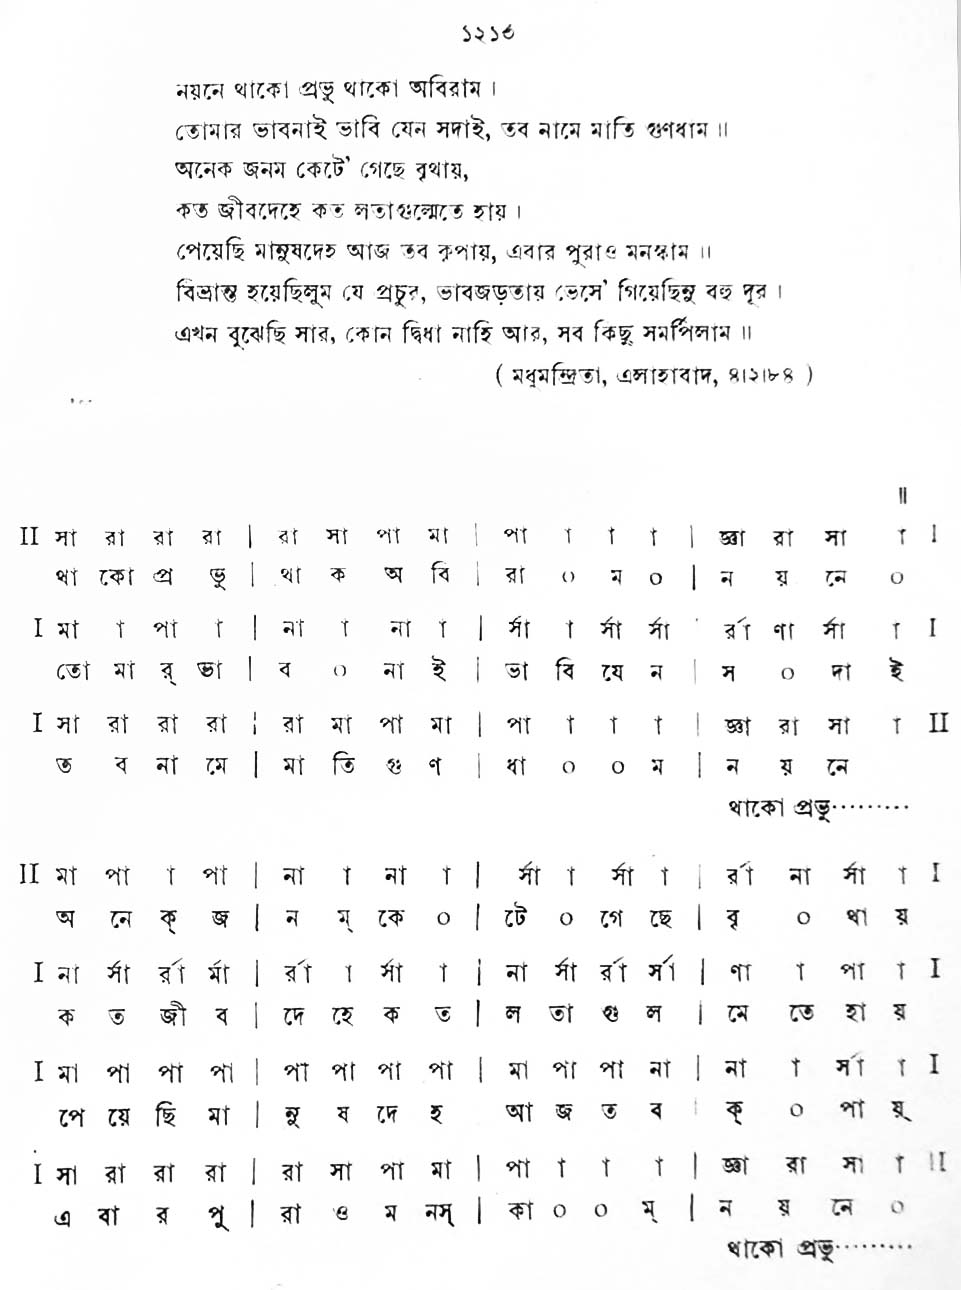 ১২১৩
নয়নে থাকো প্রভু থাকো অবিরাম ।
তোমার ভাবনাই ভাবি যেন সদাই, তব নামে মাতি গুণধাম ॥
অনেক জনম কেটে' গেছে বৃথায়,
কত জীবদেহে কত লতাগুল্মেতে হায় ।
পেয়েছি মানুষদেহ আজ তব কৃপায়, এবার পুরাও মনস্কাম ॥
বিভ্রান্ত হয়েছিলুম যে প্রচুর, ভাবজড়তায় ভেসে' গিয়েছিনু বহু দূর ।
এখন বুঝেছি সার, কোন দ্বিধা নাহি আর, সব কিছু সমর্পিলাম ॥
( মধুমন্দ্রিতা, এলাহাবাদ, ৪।২।৮৪ )
॥
II সা রা রা রা | রা সা পা মা | পা া া া | জ্ঞা রা সা া I
থা কো প্র ভু | থা ক অ বি | রা ০ ম ০ | ন য় নে ০
I মা া পা া | না া না া | র্সা া র্সা র্সা | র্রা ণা র্সা া I
তো মা র্ ভা | ব ০ না ই | ভা বি যে ন | স ০ দা ই
I সা রা রা রা | রা মা পা মা | পা া া া | জ্ঞা রা সা া II
ত ব না মে | মা তি গু ণ | ধা ০ ০ ম | ন য় নে
থাকো প্রভু·········
II মা পা া পা | না া না া | র্সা া র্সা া | র্রা না র্সা া I
অ নে ক্ জ | ন ম্ কে ০ | টে ০ গে ছে | বৃ ০ থা য়
I না র্সা র্রা র্মা | র্রা া র্সা া | না র্সা র্রা র্সা | ণা া পা া I
ক ত জী ব | দে হে ক ত | ল তা গু ল | মে তে হা য়
I মা পা পা পা | পা পা পা পা | মা পা পা না | না া র্সা া I
পে য়ে ছি মা | নু ষ দে হ আ জ ত ব | কৃ ০ পা য়্
I সা রা রা রা | রা সা পা মা | পা া া া | জ্ঞা রা সা া II
এ বা র পু | রা ও ম নস্ | কা ০ ০ ম্ | ন য় নে ০
থাকো প্রভু·········